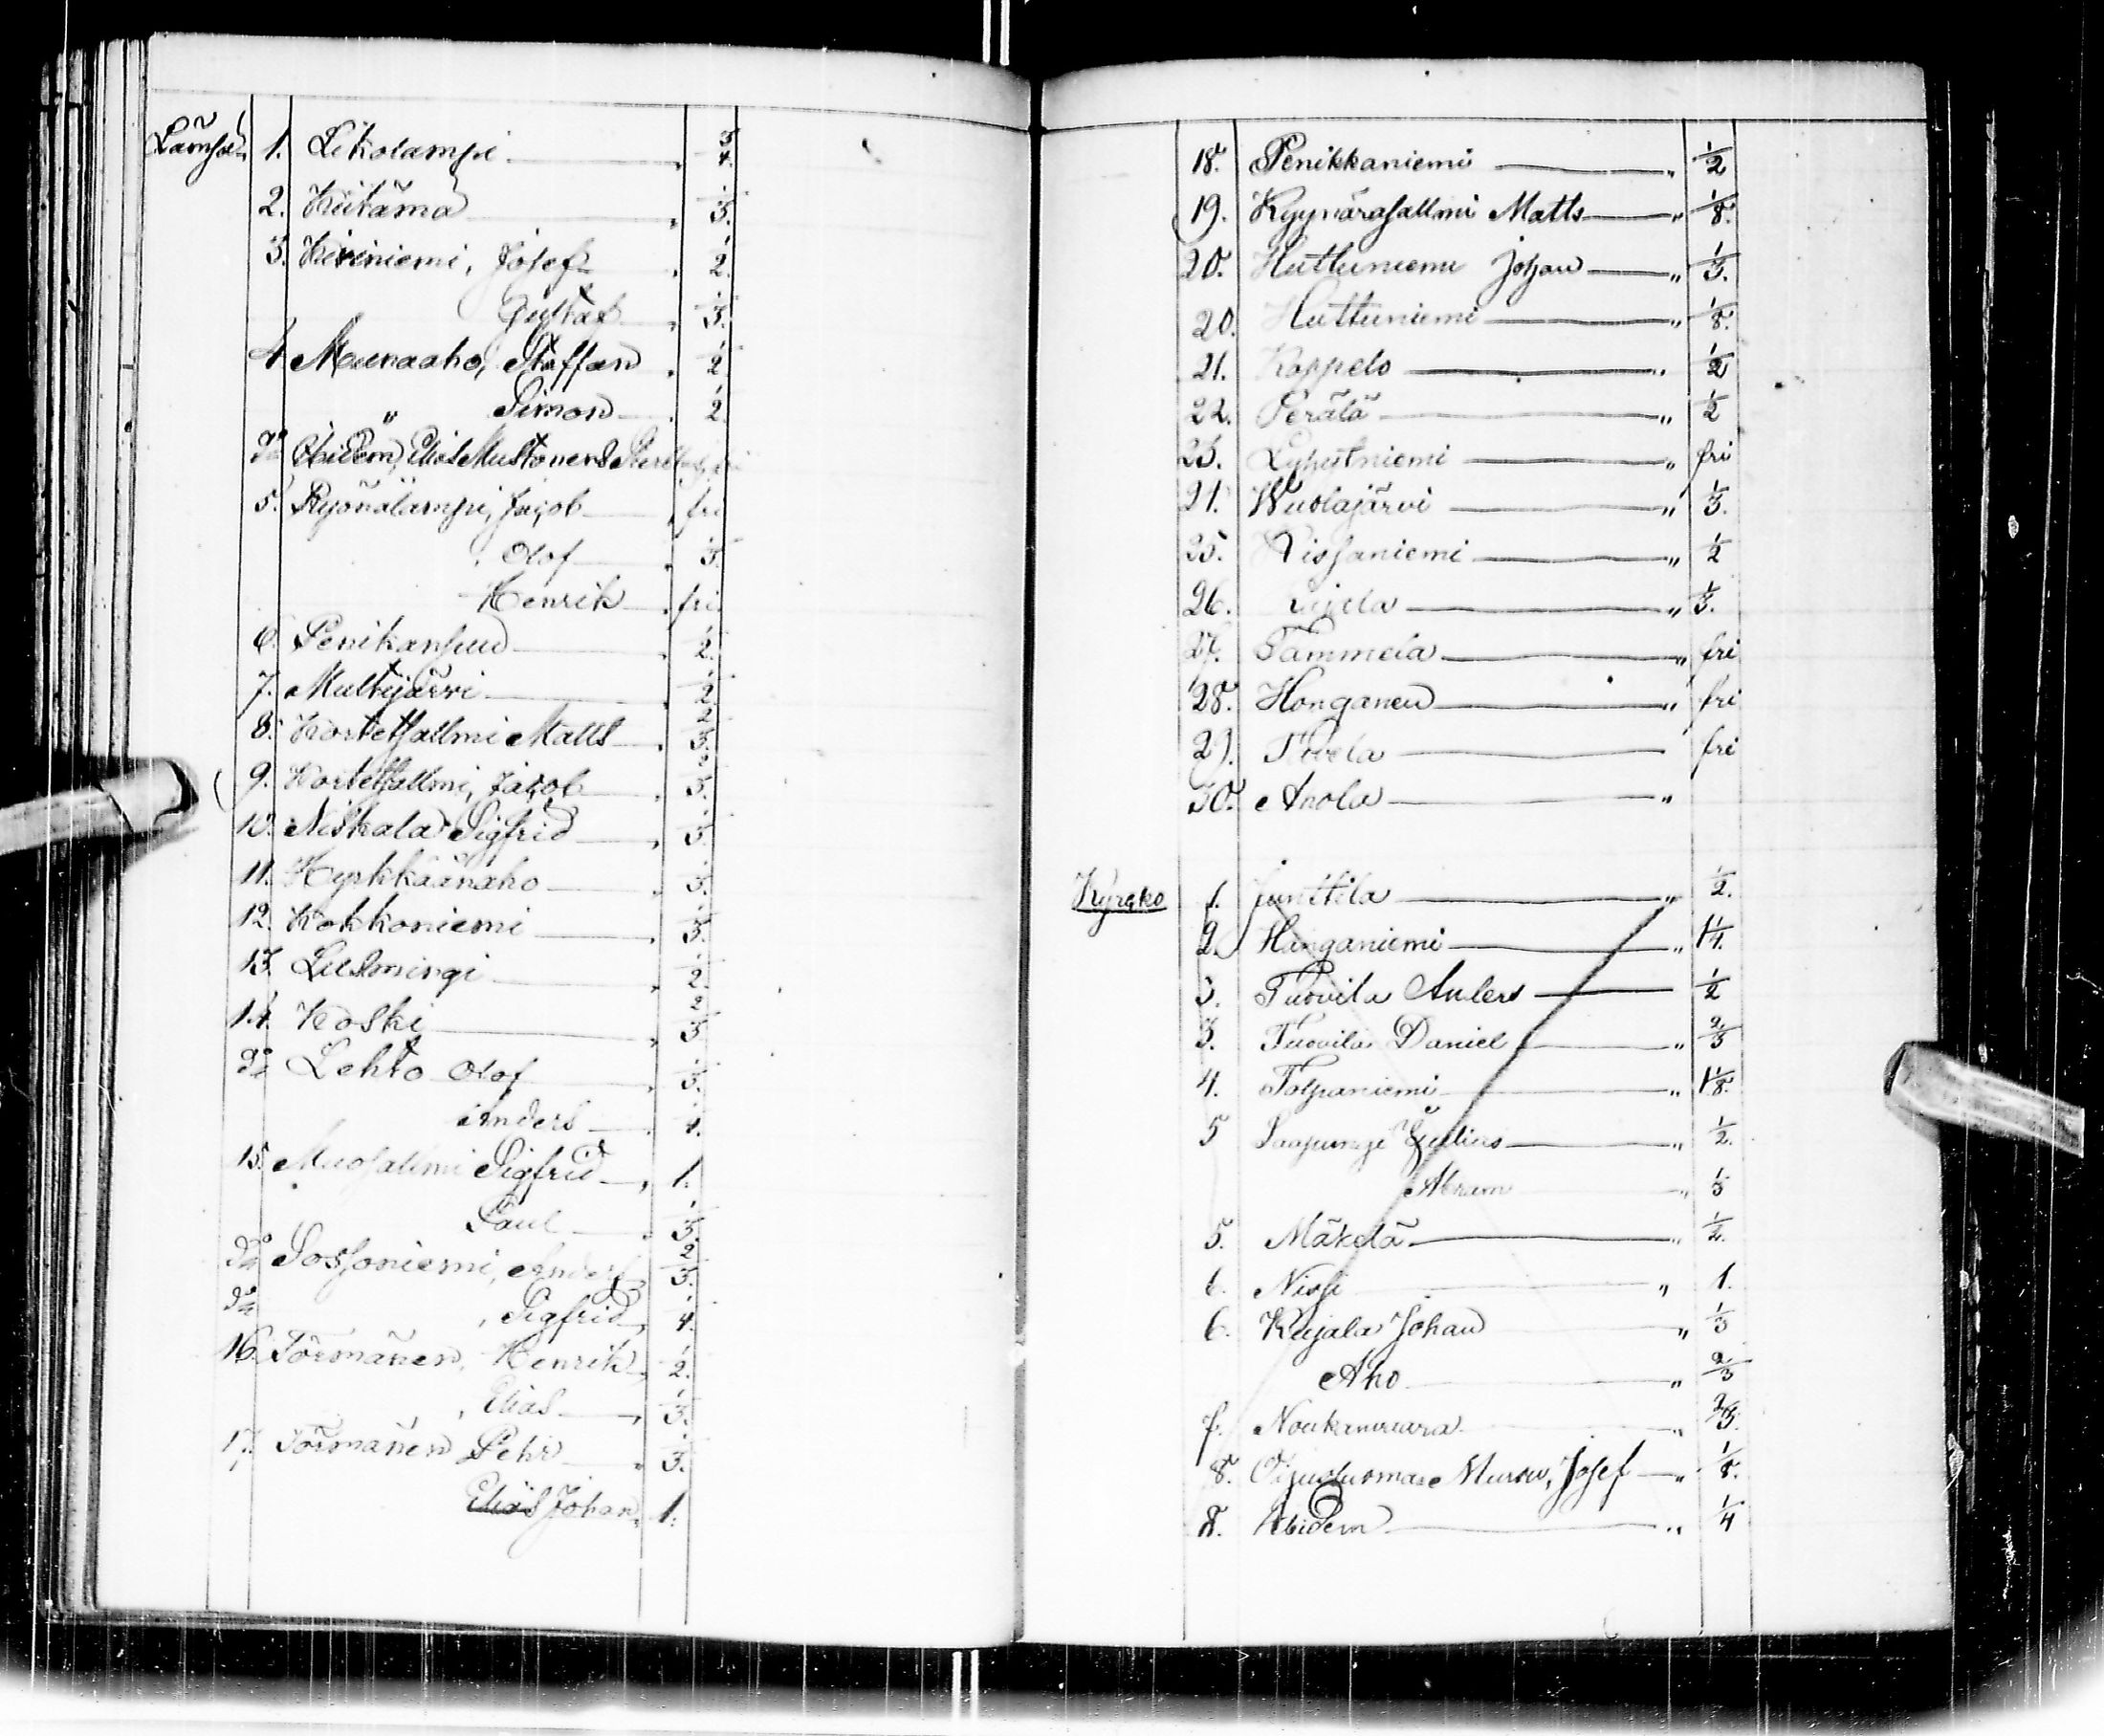 Lämsä
1. Likolampi 3/4.
2. Kiitämä 1/3.
3. Kiviniemi, Josef 1/2.
Gustaf 1/3.
4. Murnaaho, Staffan 1/2
" Simon 1/2.
do Ibidem, Elias Mustonens
5. Ryönälampi, Jacob fri
Olof 1/3.
Henrik fri.
6. Penikanpuu 1/2.
7. Multijärvi 1/2.
8. Kortetsallmi Matts 2/3.
9. Kortetsallmi, Jacob 2/3.
10. Niskala Sigfrid 1/3.
11. Hyrkkäänaho 1/3.
12. Kokkoniemi 1/3.
13. Liismingi 1/2.
14. Koski 2/3
do Lehto Olof 1/3.
Anders 1/4.
15. Muosallmi Sigfrid 1.
Paul 1/3.
do Sossoniemi, Anders 2/3.
do , Sigfrid 1/4.
16. Törmänen, Henrik 1/2.
, Elias 1/3.
17. Törmänen Pehr 1/3.
Elias Johan, 1.
18. Penikkaniemi " 1/2
19. Kyynäräsallmi Matts " 1/8.
20. Huttuniemi Johan " 1/3.
20. Huttuniemi " 1/8.
21. Koppelo " 1/2
22. Perälä " 1/2
23. Lypytniemi " fri
21. Wuolajärvi " 1/3.
25. Kissaniemi " 1/2
26. " 1/3.
27. Tammela " fri
28. Honganen " fri
29. fri
30. Anola "
Kyrcko
1. Junttila " 1/2.
2. Hanganiemi " 1 1/4.
3. Tuovila Anders 1/2
3. Tuovila Daniel " 2/3
4. Tolpaniemi " 1 1/8.
5 Saapungi Julius " 1/2.
Abram " 1/3
5. Mäkelä " 1/2.
6. Nissi " 1.
6. Kujala Johan " 1/3
Aho " 2/3
7. Noukanvaara " 2/3.
8. Josef " 1/8.
8. Ibidem " 1/4